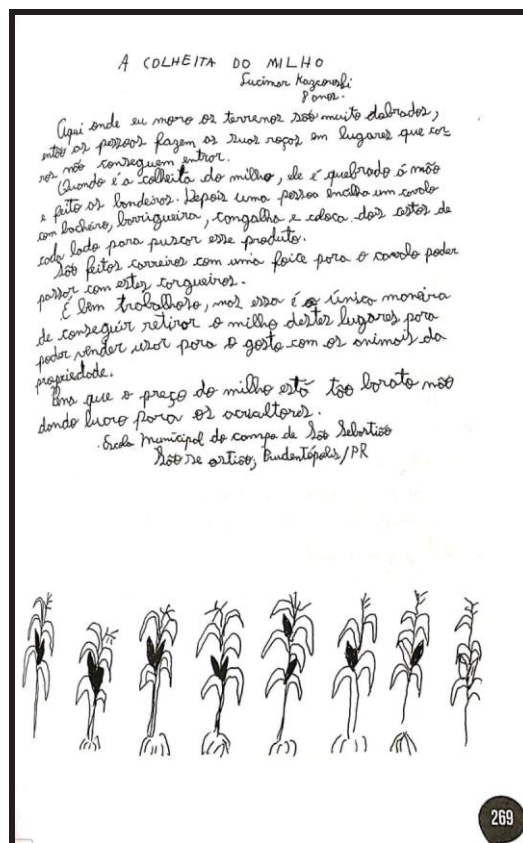 A COLHEITA DO MILHO
Lucimar
8 anos.
Aqui onde eu moro os terrenos são muito dobrados,
então as pessoas fazem as suas roças em lugares que car-
ros não conseguem entrar.
Quando é a colheita do milho, ele é quebrado á mão
e feito as bandeiras. Depois uma pessoa encilha um cavalo
com bacheiro, barrigueira, cangalha e coloca dois cestos de
cada lado para puxar esse produto.
São feitos carreiros com uma foice para o cavalo poder
passar com estes cargueiros.
É bem trabalhoso, mas essa é a única maneira
de conseguir retirar o milho destes lugares para
poder vender usar para o gasto com os animais da
propriedade.
que o preço do milho está tão barato não
dando lucro para os
Escola Municipal do campo de São Sebastião
Prudentópolis/PR
269